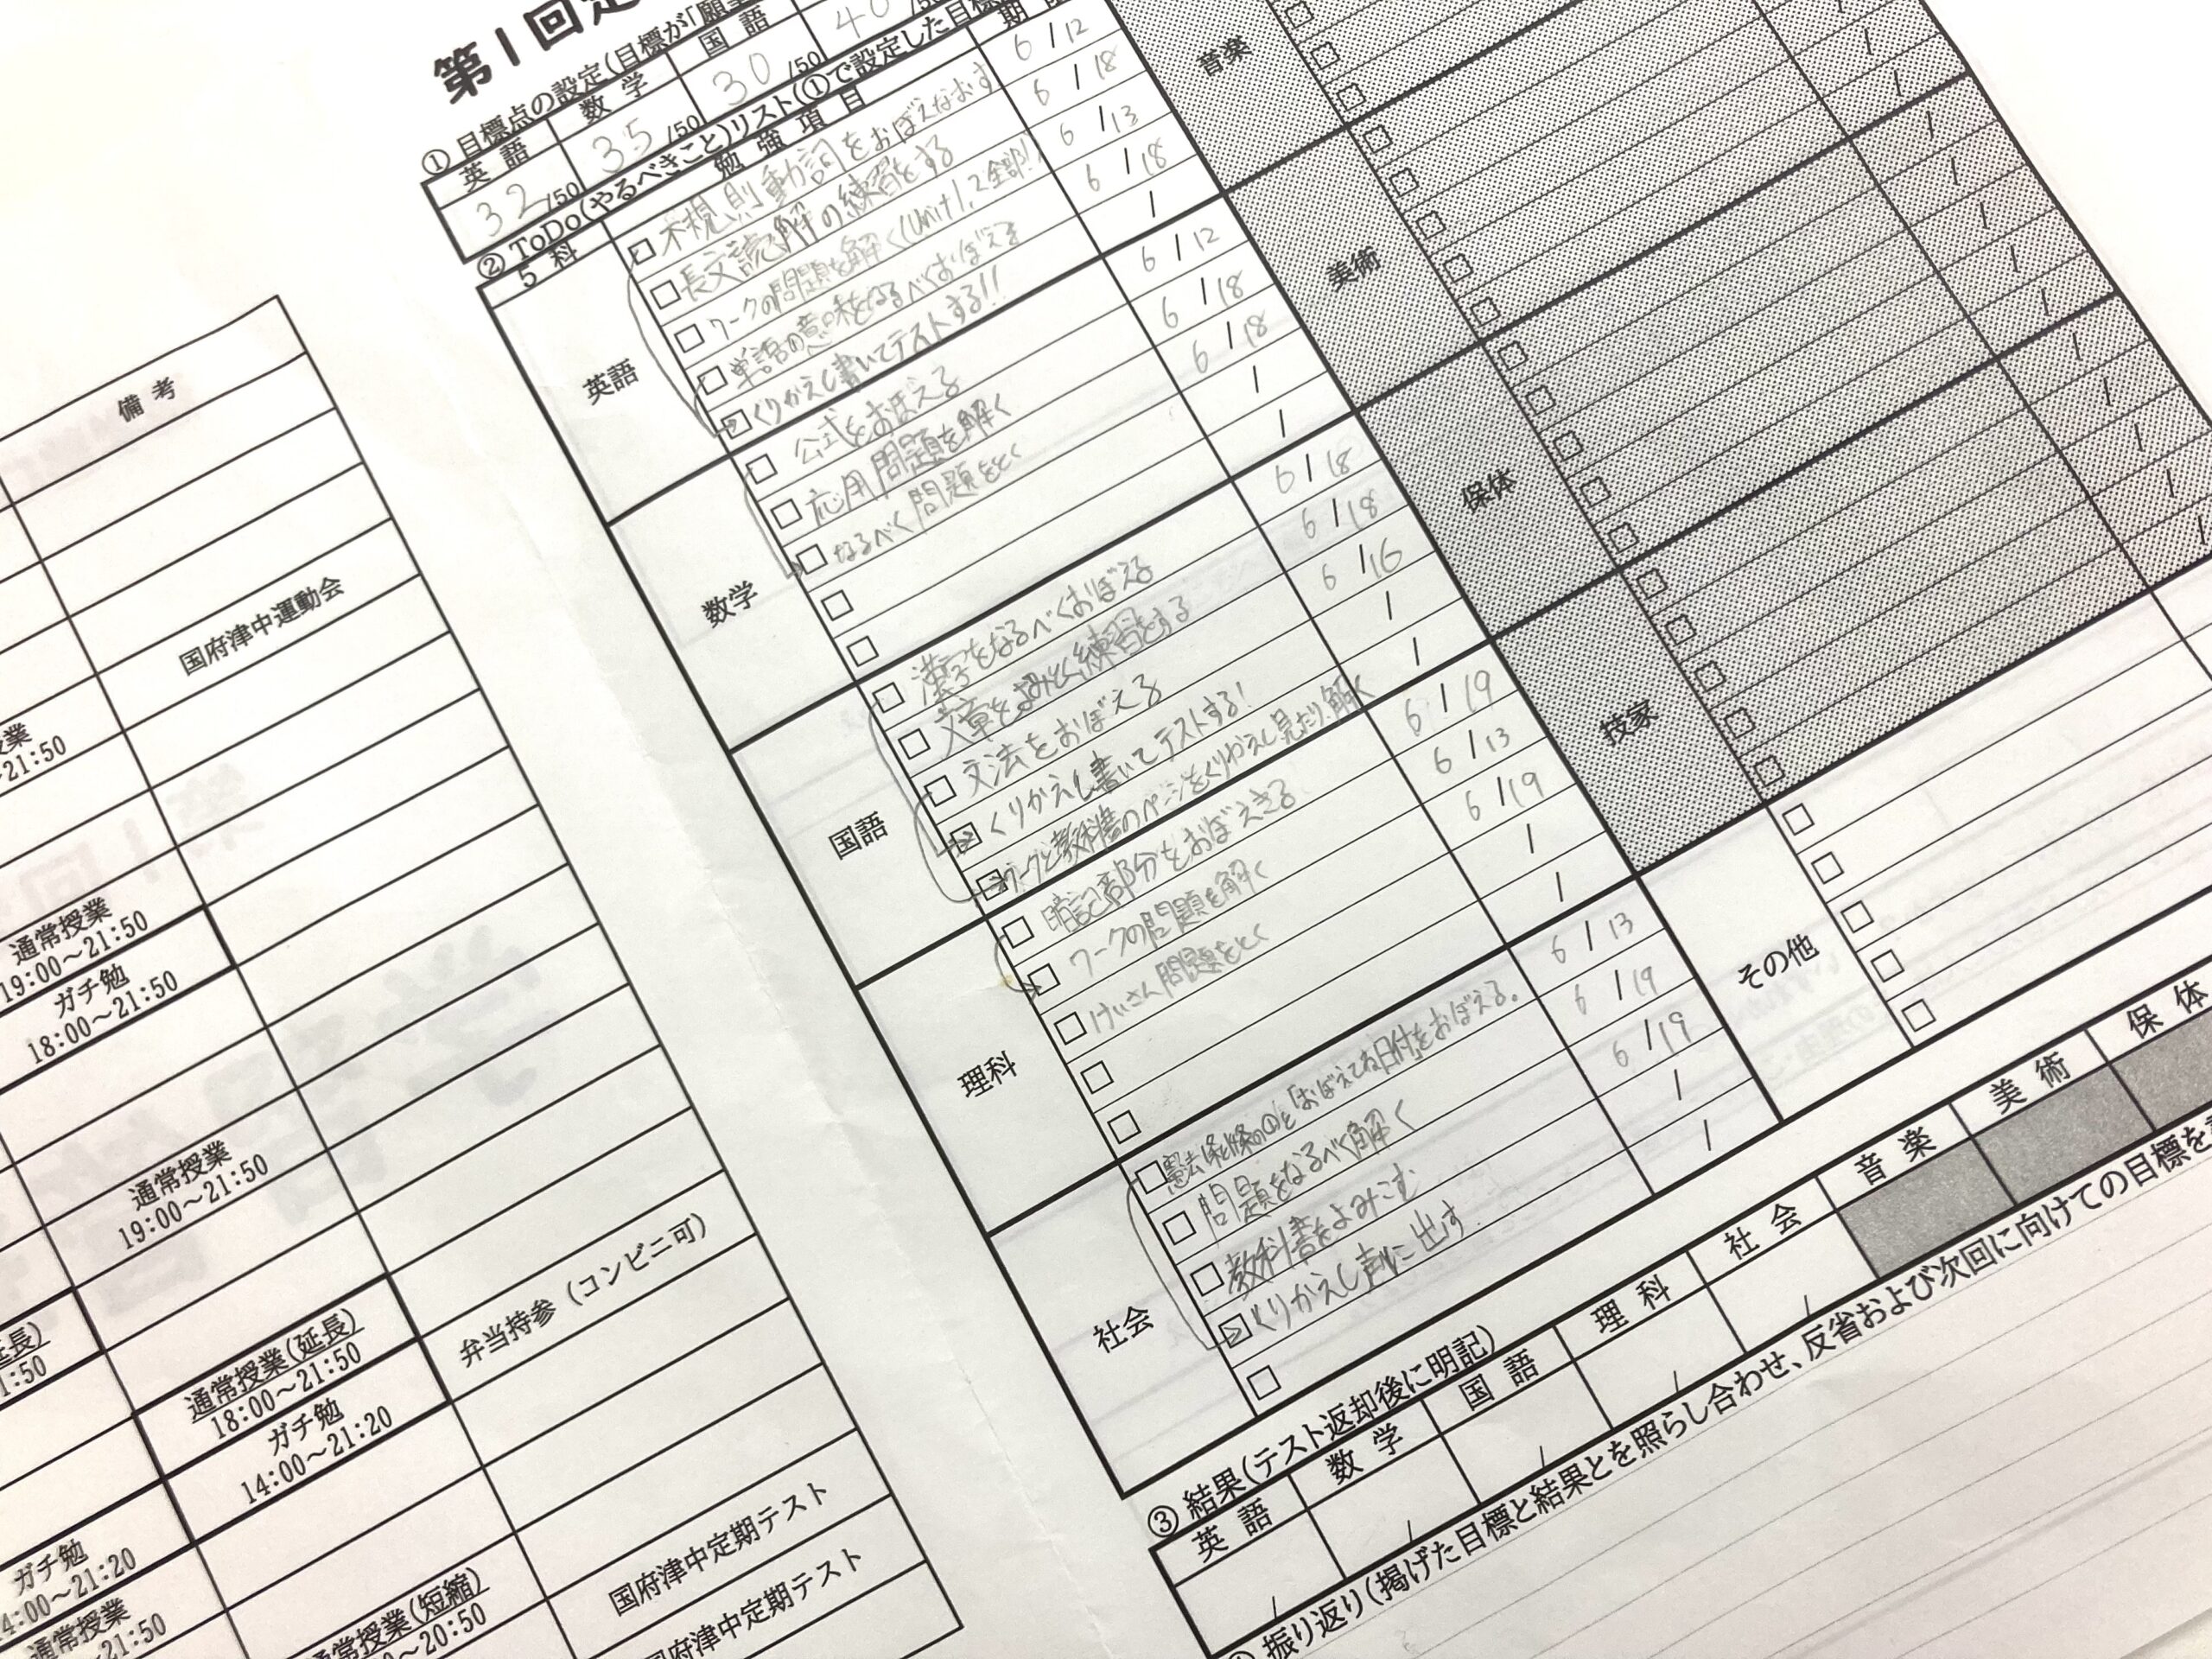 備 考
国府津中運動会
21:50
通常授業
19:00～21:50
ガチ勉
18:00～21:50
通常授業
19:00～21:50
延長)
通常授業(延長)
18:00～21:50
弁当持参（コンビニ可）
ガチ勉
14:00～21:20
ガチ勉
通常授業
21:50
通常授業(短縮)
20:50
国府津中定期テスト
国府津中定期テスト
第1回定
① 目標点の設定(目標が「願望
英 語
数 学
国 語
32/50
35/50
30/50
40
② ToDo(やるべきこと)リスト(①で設定した目標
5 科
勉 強 項 目
英語
□ 不規則動詞をおぼえなおす 6/12
□ 長文読解の練習をする 6/18
□ ワークの問題を解く(Unit1,2全部!) 6/13
□ 単語の意味をなるべくおぼえる 6/18
□ くりかえし書いてテストする!! /
数学
□ 公式をおぼえる 6/12
□ 応用問題を解く 6/18
□ なるべく問題をとく 6/18
□ /
□ /
国語
□ 漢字をなるべくおぼえる 6/18
□ 文章をよみとく練習をする 6/18
□ 文法をおぼえる 6/16
□ くりかえし書いてテストする! /
□ ワークと教科書のページをくりかえし見たり、解く /
理科
□ 暗記部分をおぼえきる 6/19
□ ワークの問題を解く 6/13
□ けいさん問題をとく 6/19
□ /
□ /
社会
□ 「おぼえてね日付」をおぼえる。 6/13
□ 問題をなるべく解く 6/19
□ 教科書をよみこむ 6/19
□ くりかえし声に出す /
□ /
音楽
美術
保体
技家
その他
③ 結果(テスト返却後に明記)
英 語
数 学
国 語
理 科
社 会
音 楽
美 術
保 体
振り返り(掲げた目標と結果とを照らし合わせ、反省および次回に向けての目標を